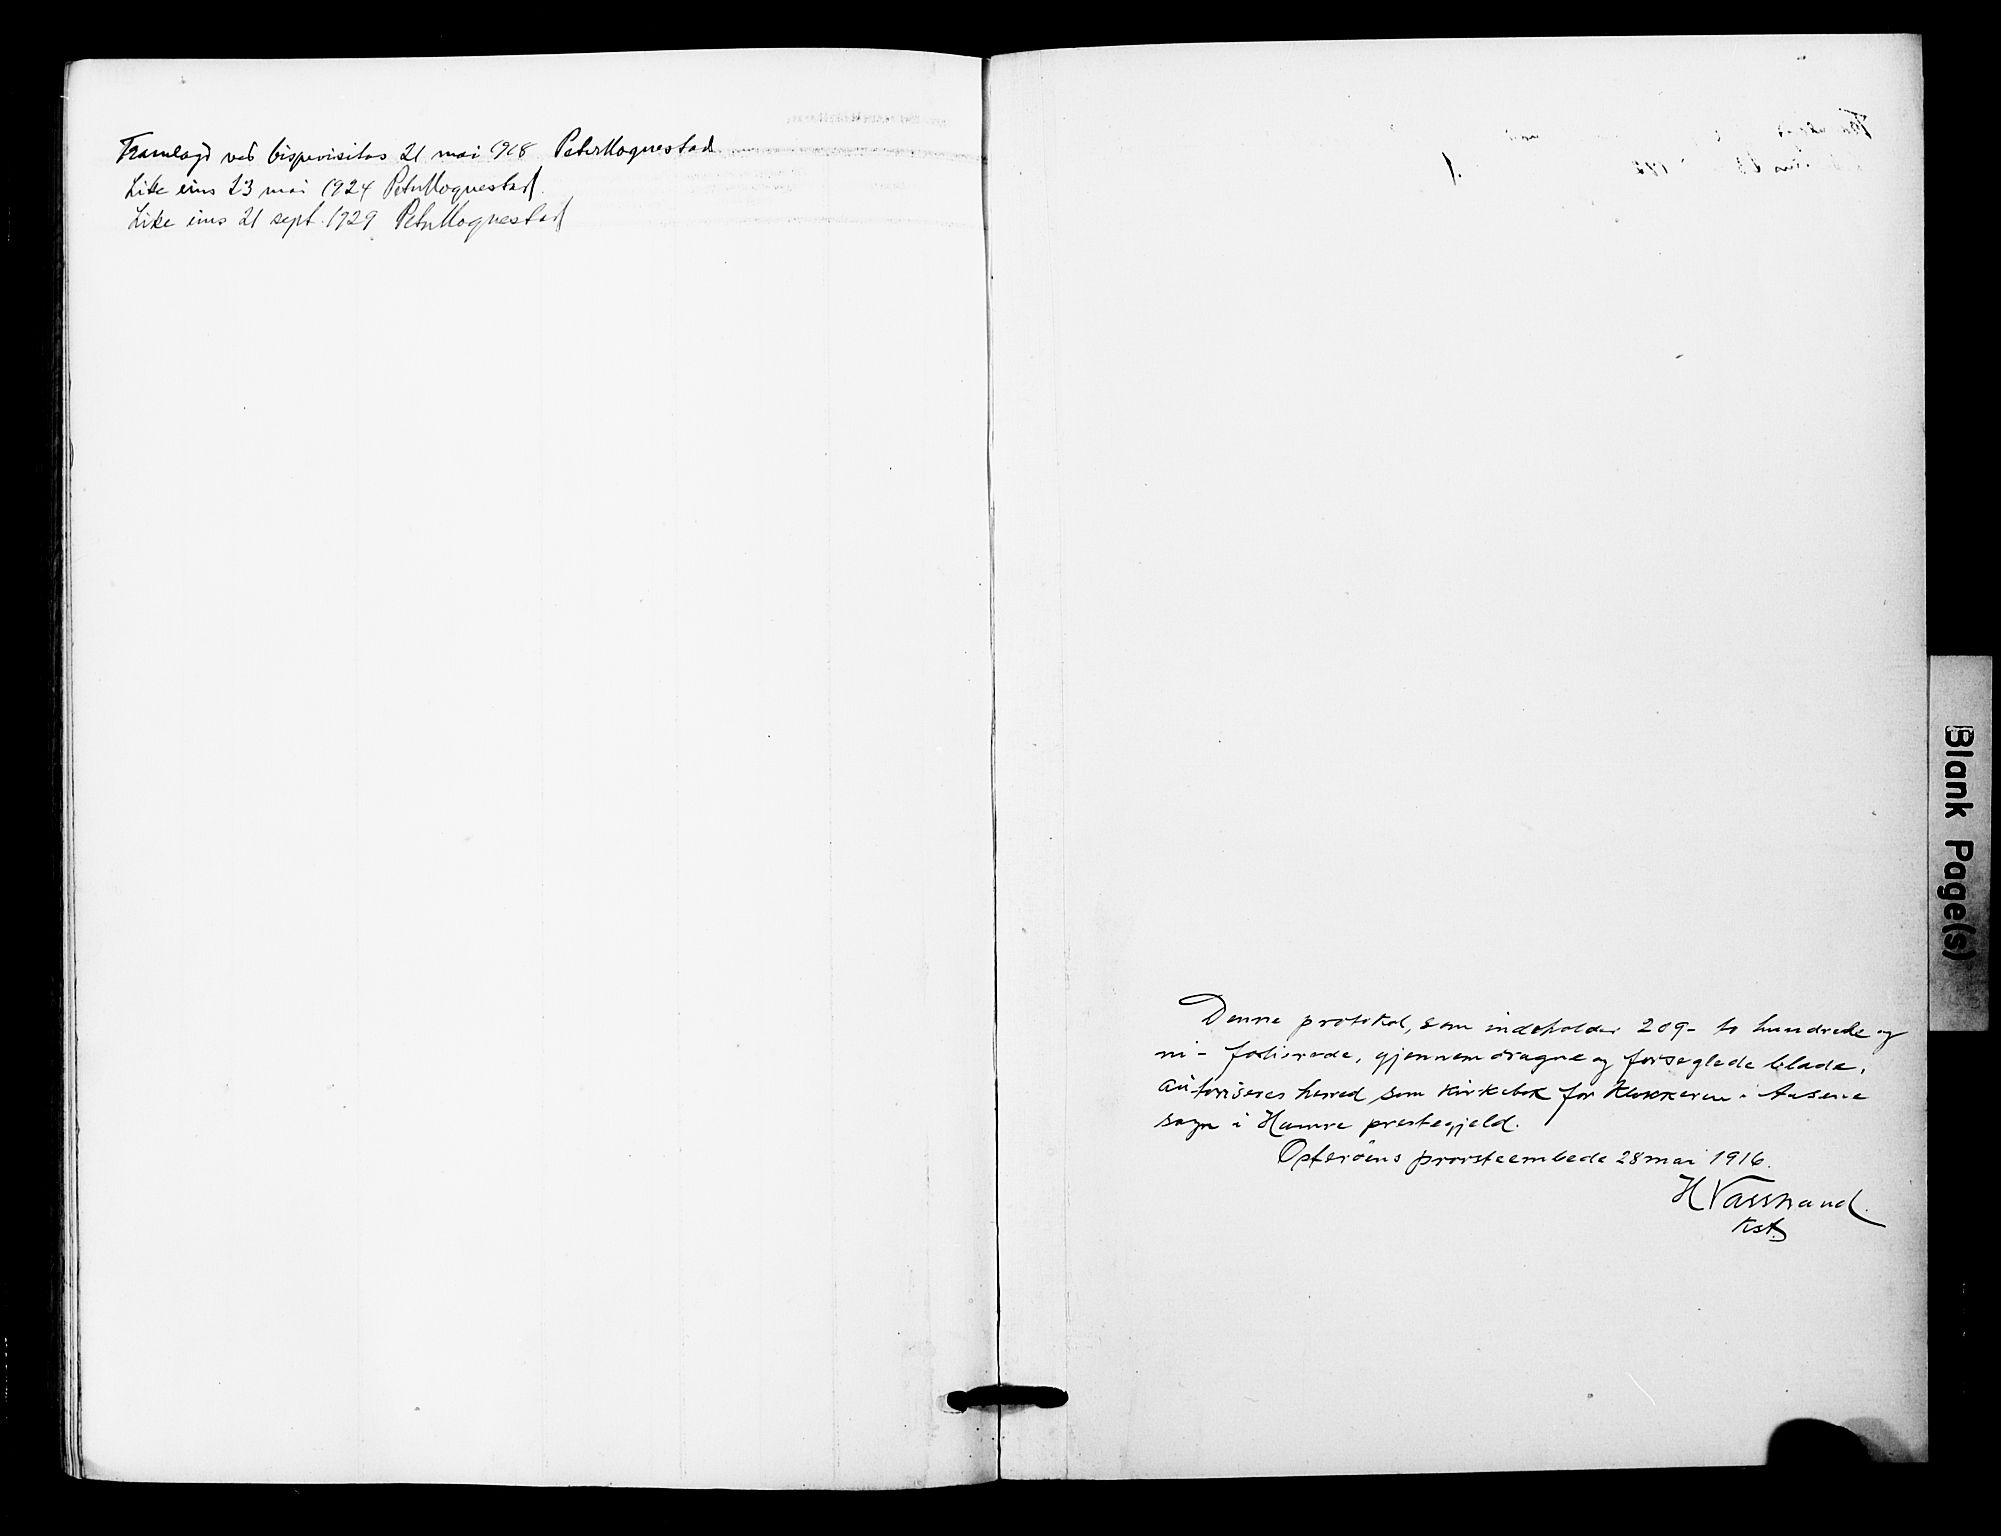 Framlagd ved bispevisitas 21 mai 1918 Peter Hognestad
Like eins 23 mai 1924 Peter Hognestad.
Like eins 21 sept. 1929 Peter Hognestad
Denne protokol, som indeholder 209 - to hundrede og
ni - folierede, gjennemdragne og forseglede blade,
autoriseres herved som kirkebok for klokkeren i Aasene
sogn i Hamre prestegjeld.
Osterøens prosteembede 28 mai 1916.
H Vasstrand.
kst.
Blank Page(s)